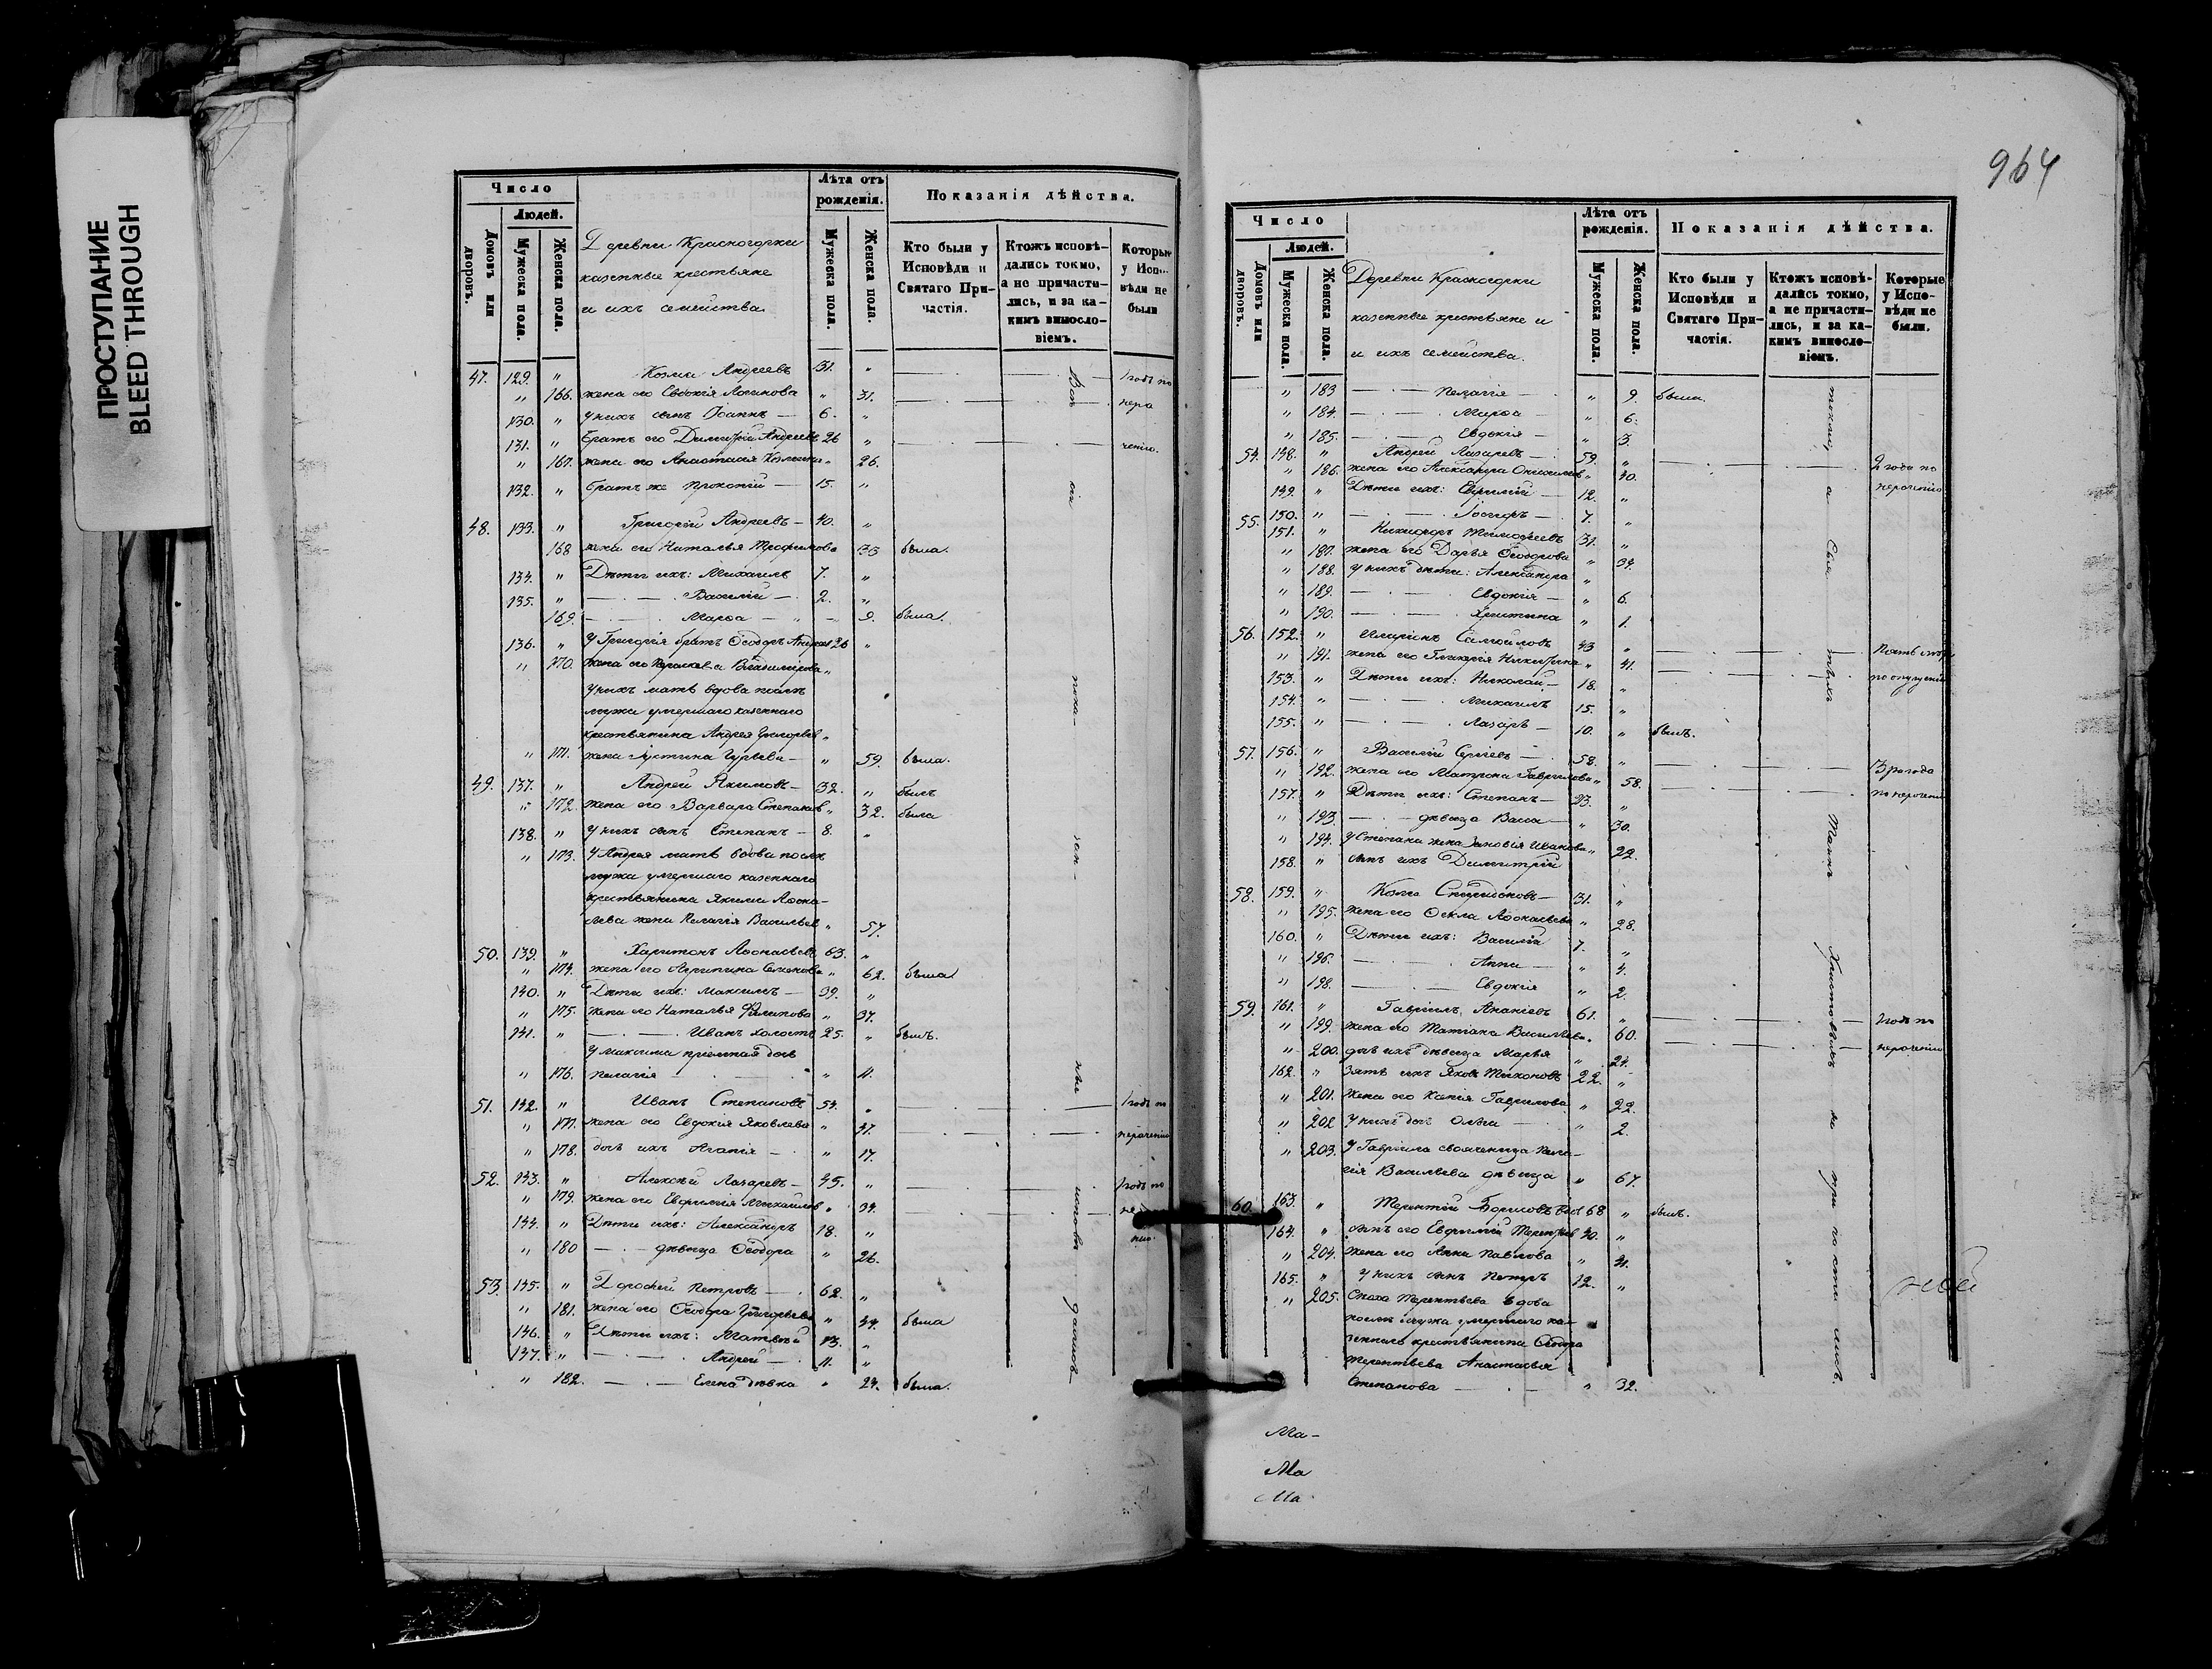 ПРОСТУПАНИЕ
BLEED THROUGH
964
Число
Людей.
Домовъ или дворовъ.
Мужеска пола.
Женска пола.
Деревни Красногорки
казенные крестьяне
и ихъ семейства
Лѣта отъ рожденія.
Мужеска пола.
Женска пола.
Показанія дѣйства.
Кто были у Исповѣди и Святаго Причастія.
Ктожъ исповѣдались токмо, а не причастились, и за какимъ винословіемъ.
Которые у Исповѣди не были
47. 129. " Козма Андреевъ 31. " 1 годъ по
" 166. жена его Евдокія Логинова " 31. нера
130. " у нихъ сынъ Іоаннъ — 6. "
131. " братъ его Димитрій Андреевъ 26 " ченію.
" 167. жена его Анастасія Козмина " 26.
132. " братъ же Прокопій — 15. "
48. 133. " Григорій Андреевъ — 40. "
168 жена его Наталья Трофимова 33 была.
134. " Дѣти ихъ: Михаилъ 7. "
135. " Василій — 2. "
169. Марѳа — 9. была.
136. " У Григорія братъ Ѳеодоръ Андреев 26 "
" 170. жена его Владимірова "
у нихъ мать вдова послѣ
мужа умершаго казеннаго
крестьянина Андрея Григорьев "
" 171. жена Іустина Гурьева — " 59. была.
49. 137. " Андрей Якимовъ — 32. " былъ
" 172. жена его Варвара Степанов " 32. была
138. " у нихъ сынъ Степанъ — 8. "
" 173. У Андрея мать вдова послѣ
мужа умершаго казеннаго
крестьянина Якима Аѳона-
сьева жена Пелагія Васильев " 57.
50. 139. " Харитонъ Аѳонасьевъ 63. "
" 174. жена его Агрипина Семенова " 62. была
140. " Дѣти ихъ: Максимъ — 39. "
" 175. жена его Наталья Филипова " 37.
141. " Иванъ холостъ 25. " былъ.
У Максима пріемная дочь
" 176. Пелагія " 11.
51. 142. " Иванъ Степановъ 54. " 1 годъ по
" 177. жена его Евдокія Яковлева " 47. нераченію
" 178. дочь ихъ Агапія — " 17.
52. 143. " Алексѣй Лазаревъ — 45. " 1 годъ по
" 179. жена его Евфимія Михаилов " 34.
144. " Дѣти ихъ: Александръ 18. " нію.
" 180 дѣвица Ѳеодора " 26.
53. 145. " Дороѳей Петровъ — 62. "
" 181. жена его Ѳеодора Григорьева " 44. была
146. " Дѣти ихъ: Матвѣй 13. "
137. " Андрей — 11. "
" 182. Елена дѣвка " 24. была.
Число
Людей.
Домовъ или дворовъ.
Мужеска пола.
Женска пола.
Деревни Красногорки
казенные крестьяне и
и ихъ семейства.
Лѣта отъ рожденія.
Мужеска пола.
Женска пола.
Показанія дѣйства.
Кто были у Исповѣди и Святаго Причастія.
Ктожъ исповѣдались токмо, а не причастились, и за какимъ винословіемъ.
Которые у Исповѣди не были.
" 183 Пелагія — " 9. была.
" 184. Марѳа — " 6.
" 185. Евдокія — " 3.
54. 148. " Андрей Лазаревъ — 59. " 2 года по
" 186. жена его Александра " 40. нераченію
149. " Дѣти ихъ: Евфимій — 12. "
150. " Іосифъ — 7. "
55. 151. " Никифоръ Тимофеевъ 31. "
" 187. жена его Дарья Ѳеодорова " 34.
" 188. у нихъ дѣти: Александра "
" 189. Евдокія — " 6.
" 190. Христина " 1.
56. 152. " Иларіонъ Самойловъ 43 " Пять лѣтъ
" 191. жена его Гликерія Никитина " 41. по опущенію
153. " Дѣти ихъ: Николай — 18. "
154. " Михаилъ 15. "
155. " Лазарь — 10. " былъ.
57. 156. " Василій Сергіевъ — 58. " 3 года
" 192. жена его Матрона Гаврилова " 58. по нерачению
157. " Дѣти ихъ: Степанъ — 23. "
" 193. дѣвица Васса — " 30.
" 194. У Степана жена Зиновія Иванова " 22.
158. " сынъ ихъ Димитрій
58. 159. " Козма Спиридоновъ — 31. "
" 195. жена его Ѳекла Аѳонасьева " 28.
160. " Дѣти ихъ: Василій 7. "
" 196. Анна — " 4.
" 198. Евдокія " 2.
59. 161. " Гавріилъ Ананіевъ 61. " 1 годъ по
" 199. жена его Татіана Васильева " 60. нераченію
" 200. дочь ихъ дѣвица Марья " 24.
162. " зять ихъ Яковъ Тихоновъ 22. "
" 201. жена его Ксенія Гаврилова " 22.
" 202 у нихъ дочь Ольга — " 2.
" 203. У Гавріила свояченица Пела-
гія Васильева дѣвица " 67.
60. 163. " Терентій Борисовъ вдов 68 " былъ.
164. " сынъ его Евфимій Терентьев 40. "
" 204. жена его Анна Павлова " 41.
165. " у нихъ сынъ Петръ 12. "
" 205. Сноха Терентьева вдова
послѣ мужа умершаго ка-
зеннаго крестьянина Ѳеодора
Терентьева Анастасья
Степанова " 32.
Всѣ
пока-
зан-
ные
исповѣ
токмо, а Святыхъ Таинъ Христовыхъ не пріобщались
Ма-
Ма
Ма